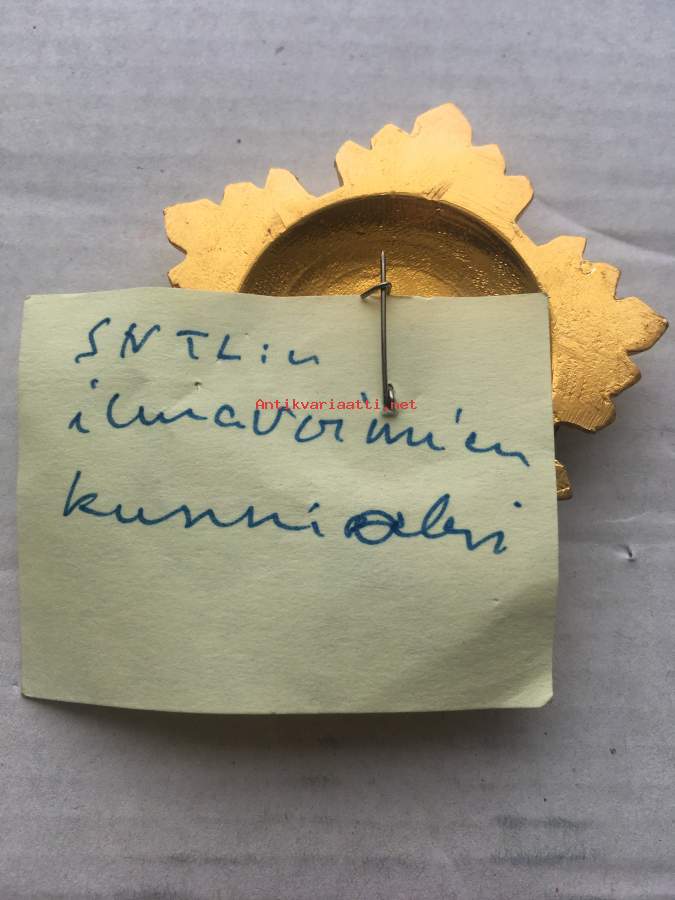 SNTL:n
Antikvariaatti.net
ilmavoimien